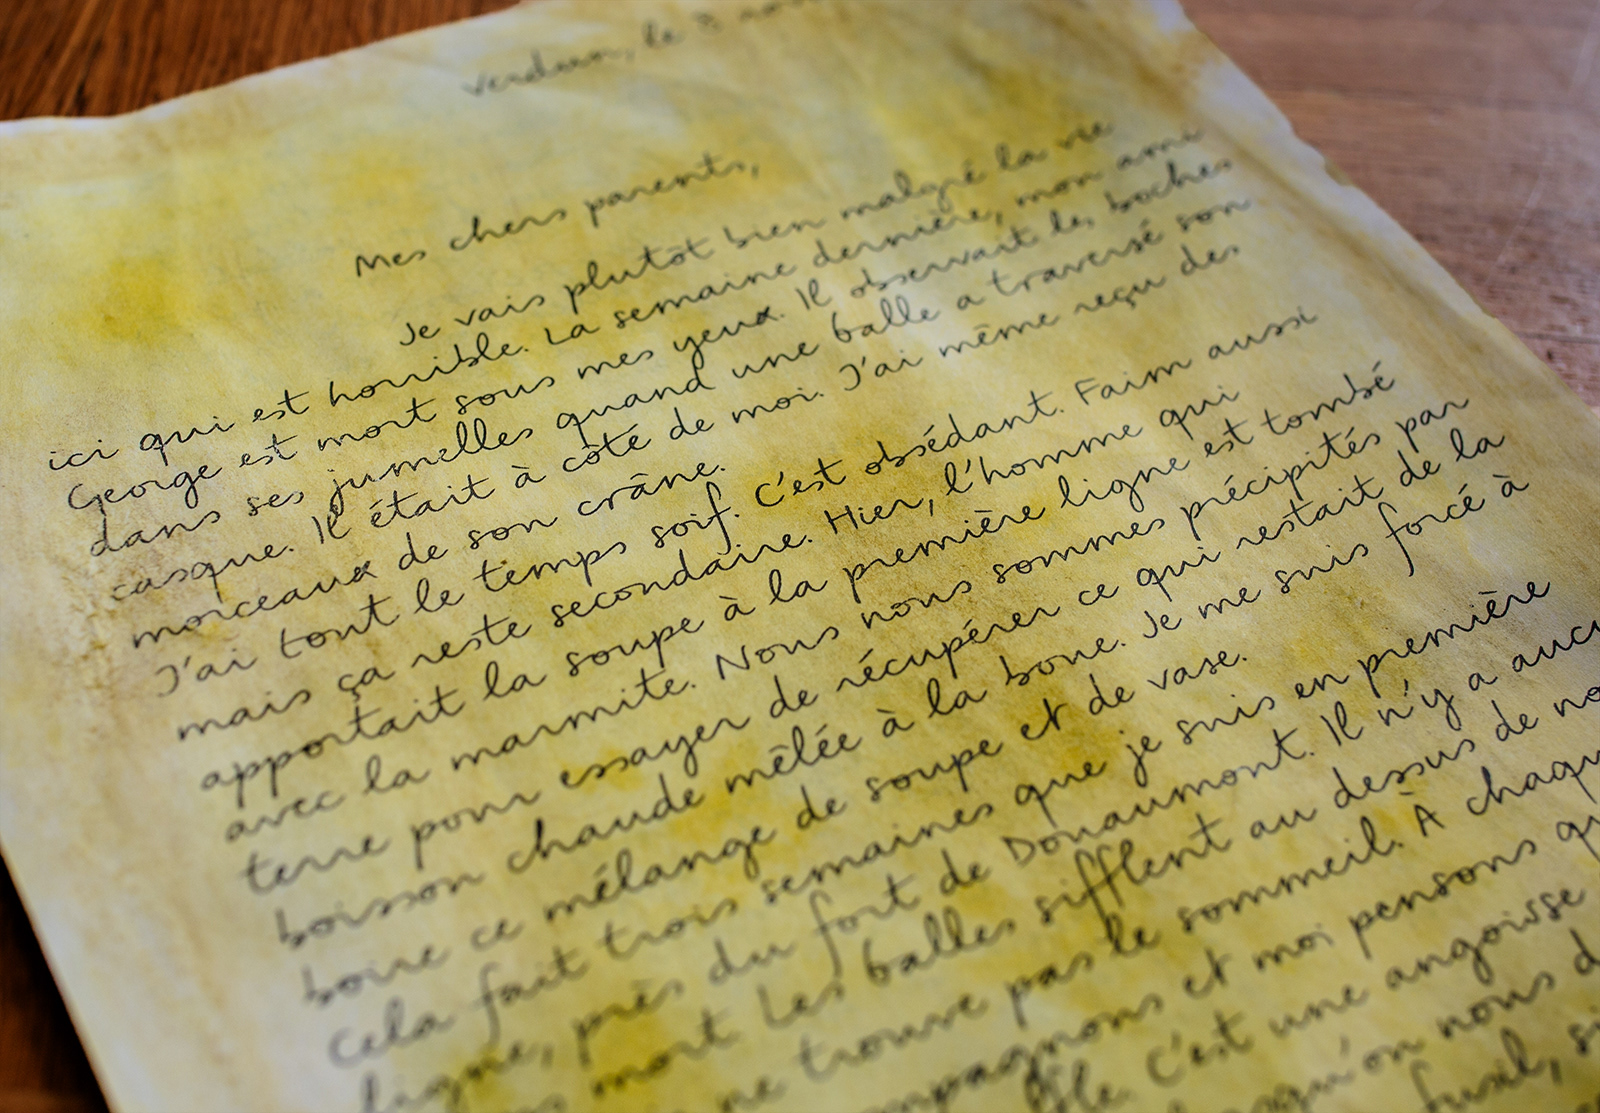 Verdun, le 8
Mes chers parents,
Je vais plutôt bien malgré la vie
ici qui est horrible. La semaine dernière, mon ami
George est mort sous mes yeux. Il observait les boches
dans ses jumelles quand une balle a traversé son
casque. Il était à côté de moi. J'ai même reçu des
morceaux de son crâne.
J'ai tout le temps soif. C'est obsédant. Faim aussi
mais ça reste secondaire. Hier, l'homme qui
apportait la soupe à la première ligne est tombé
avec la marmite. Nous nous sommes précipités par
terre pour essayer de récupérer ce qui restait de la
boisson chaude mêlée à la boue. Je me suis forcé à
boire ce mélange de soupe et de vase.
Cela fait trois semaines que je suis en première
ligne, près du fort de Douaumont. Il n'y a aucu
mort. Les balles sifflent au dessus de no
ne trouve pas le sommeil. À chaqu
et moi pensons qu
C'est une angoisse
qu'on nous d
fusil, si